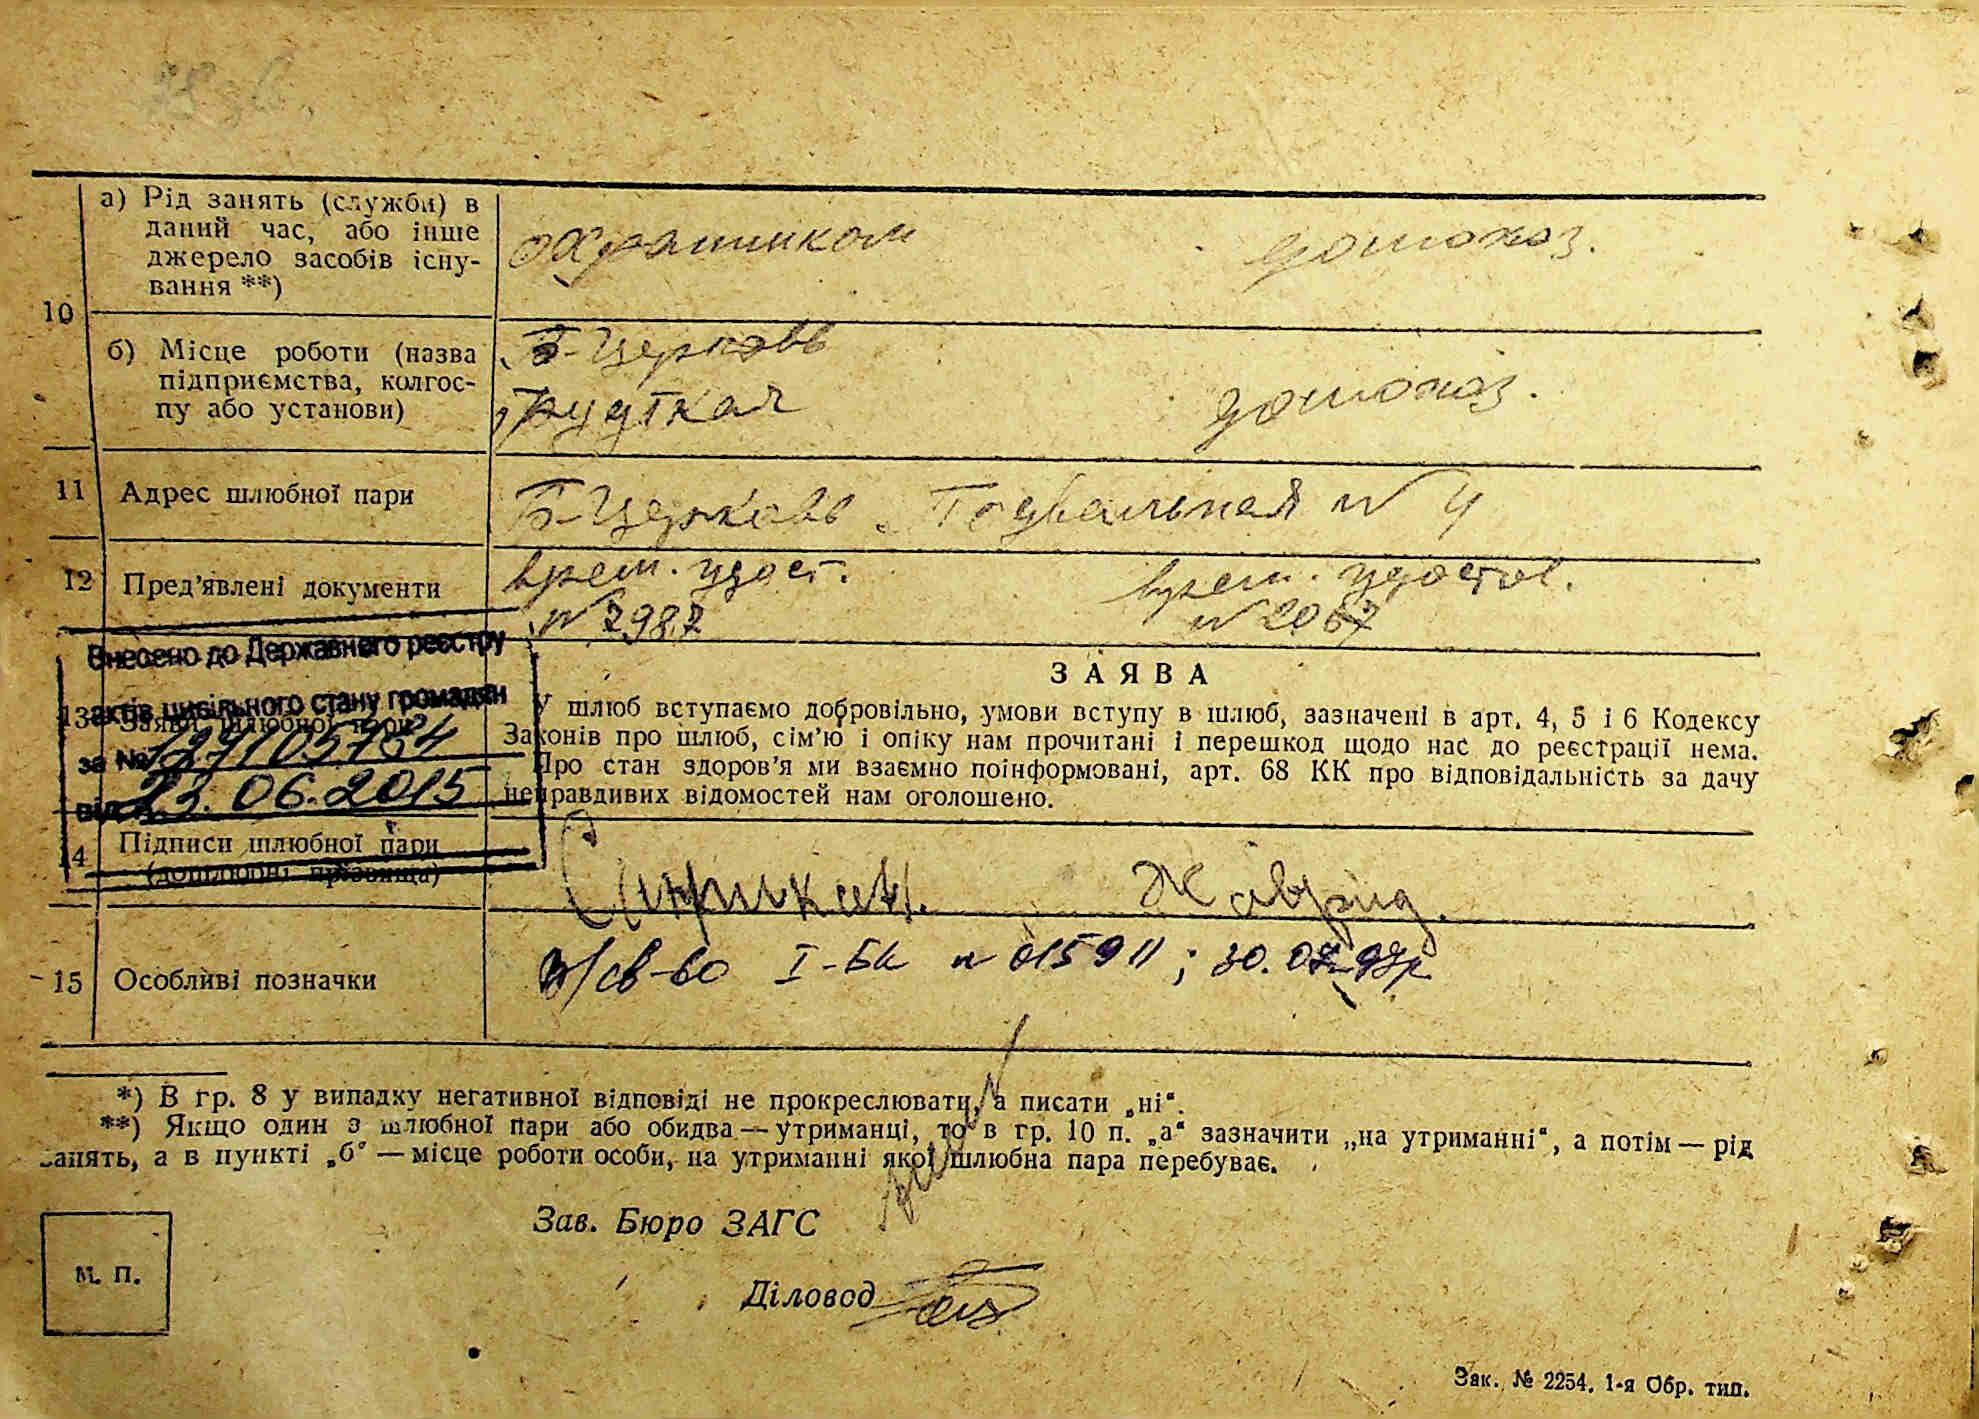 а) Рід занять (служби) в
даний час, або інше
джерело засобів існу-
вання **)
охранником
домохоз.
10
б) Місце роботи (назва
підприємства, колгос-
пу або установи)
Б-Церковь
домохоз.
11 Адрес шлюбної пари
Б-Церковь Подвальная № 4
12 Пред'явлені документи
врем. удост.
№ 7987
врем. удостов.
№ 2067
Внесено до Державного реєстру
актів цивільного стану громадян
за № 127105784
від 23.06.2015
13 Заява шлюбної пари
ЗАЯВА
У шлюб вступаємо добровільно, умови вступу в шлюб, зазначені в арт. 4, 5 і 6 Кодексу
Законів про шлюб, сім'ю і опіку нам прочитані і перешкод щодо нас до реєстрації нема.
Про стан здоров'я ми взаємно поінформовані, арт. 68 КК про відповідальність за дачу
неправдивих відомостей нам оголошено.
14 Підписи шлюбної пари
(дошлюбні прізвища)
15 Особливі позначки
в/св-во І-БК № 015911; 30.07.97р
*) В гр. 8 у випадку негативної відповіді не прокреслювати, а писати „ні“.
**) Якщо один з шлюбної пари або обидва — утриманці, то в гр. 10 п. „а“ зазначити „на утриманні“, а потім — рід
занять, а в пункті „б“ — місце роботи особи, на утриманні якої шлюбна пара перебуває.
Зав. Бюро ЗАГС
М. П.
Діловод
Зак. № 2254. 1-я Обр. тип.